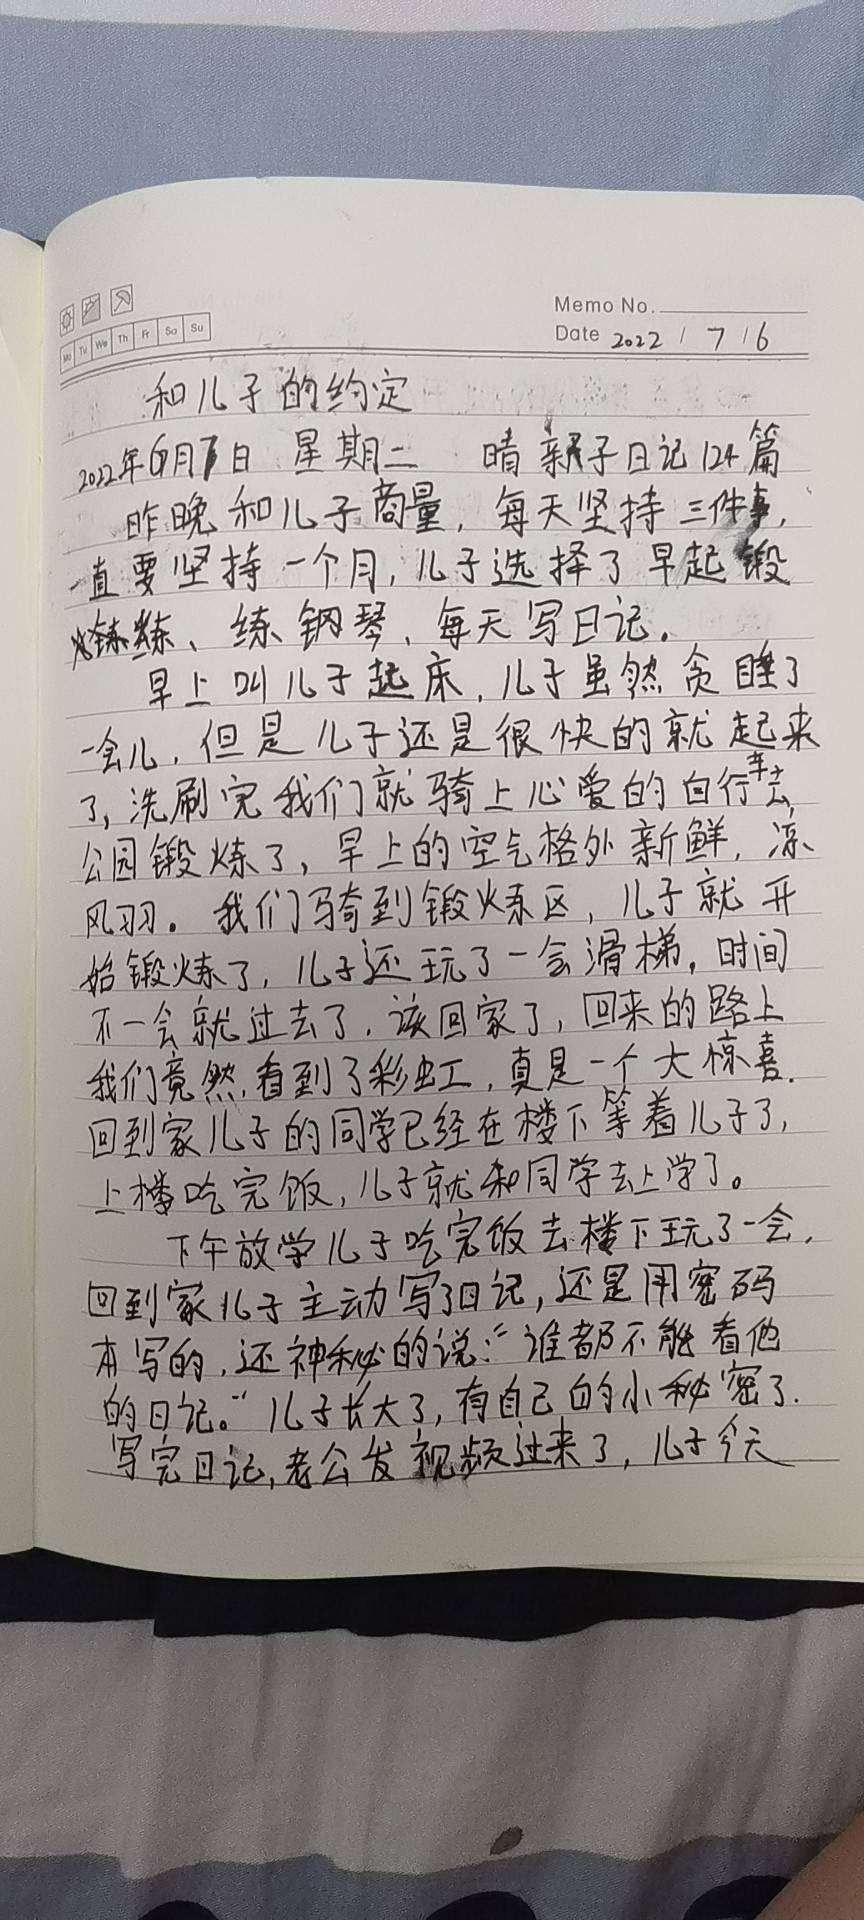 Memo No.
Mo Tu We Th Fr Sa Su
Date 2022 / 7 / 6
和儿子的约定
2022年6月7日 星期二 晴 亲子日记124篇
昨晚和儿子商量，每天坚持三件事，
一直要坚持一个月，儿子选择了早起锻
炼、练钢琴、每天写日记。
早上叫儿子起床，儿子虽然贪睡了
一会儿，但是儿子还是很快的就起来
了，洗刷完我们就骑上心爱的自行车去
公园锻炼了，早上的空气格外新鲜，凉
风习习。我们骑到锻炼区，儿子就开
始锻炼了，儿子还玩了一会滑梯，时间
不一会就过去了，该回家了，回来的路上
我们竟然看到了彩虹，真是一个大惊喜.
回到家儿子的同学已经在楼下等着儿子了，
上楼吃完饭，儿子就和同学去上学了。
下午放学儿子吃完饭去楼下玩了一会，
回到家儿子主动写了日记，还是用密码
本写的，还神秘的说：“谁都不能看他
的日记。”儿子长大了，有自己的小秘密了.
写完日记，老公发视频过来了，儿子今天